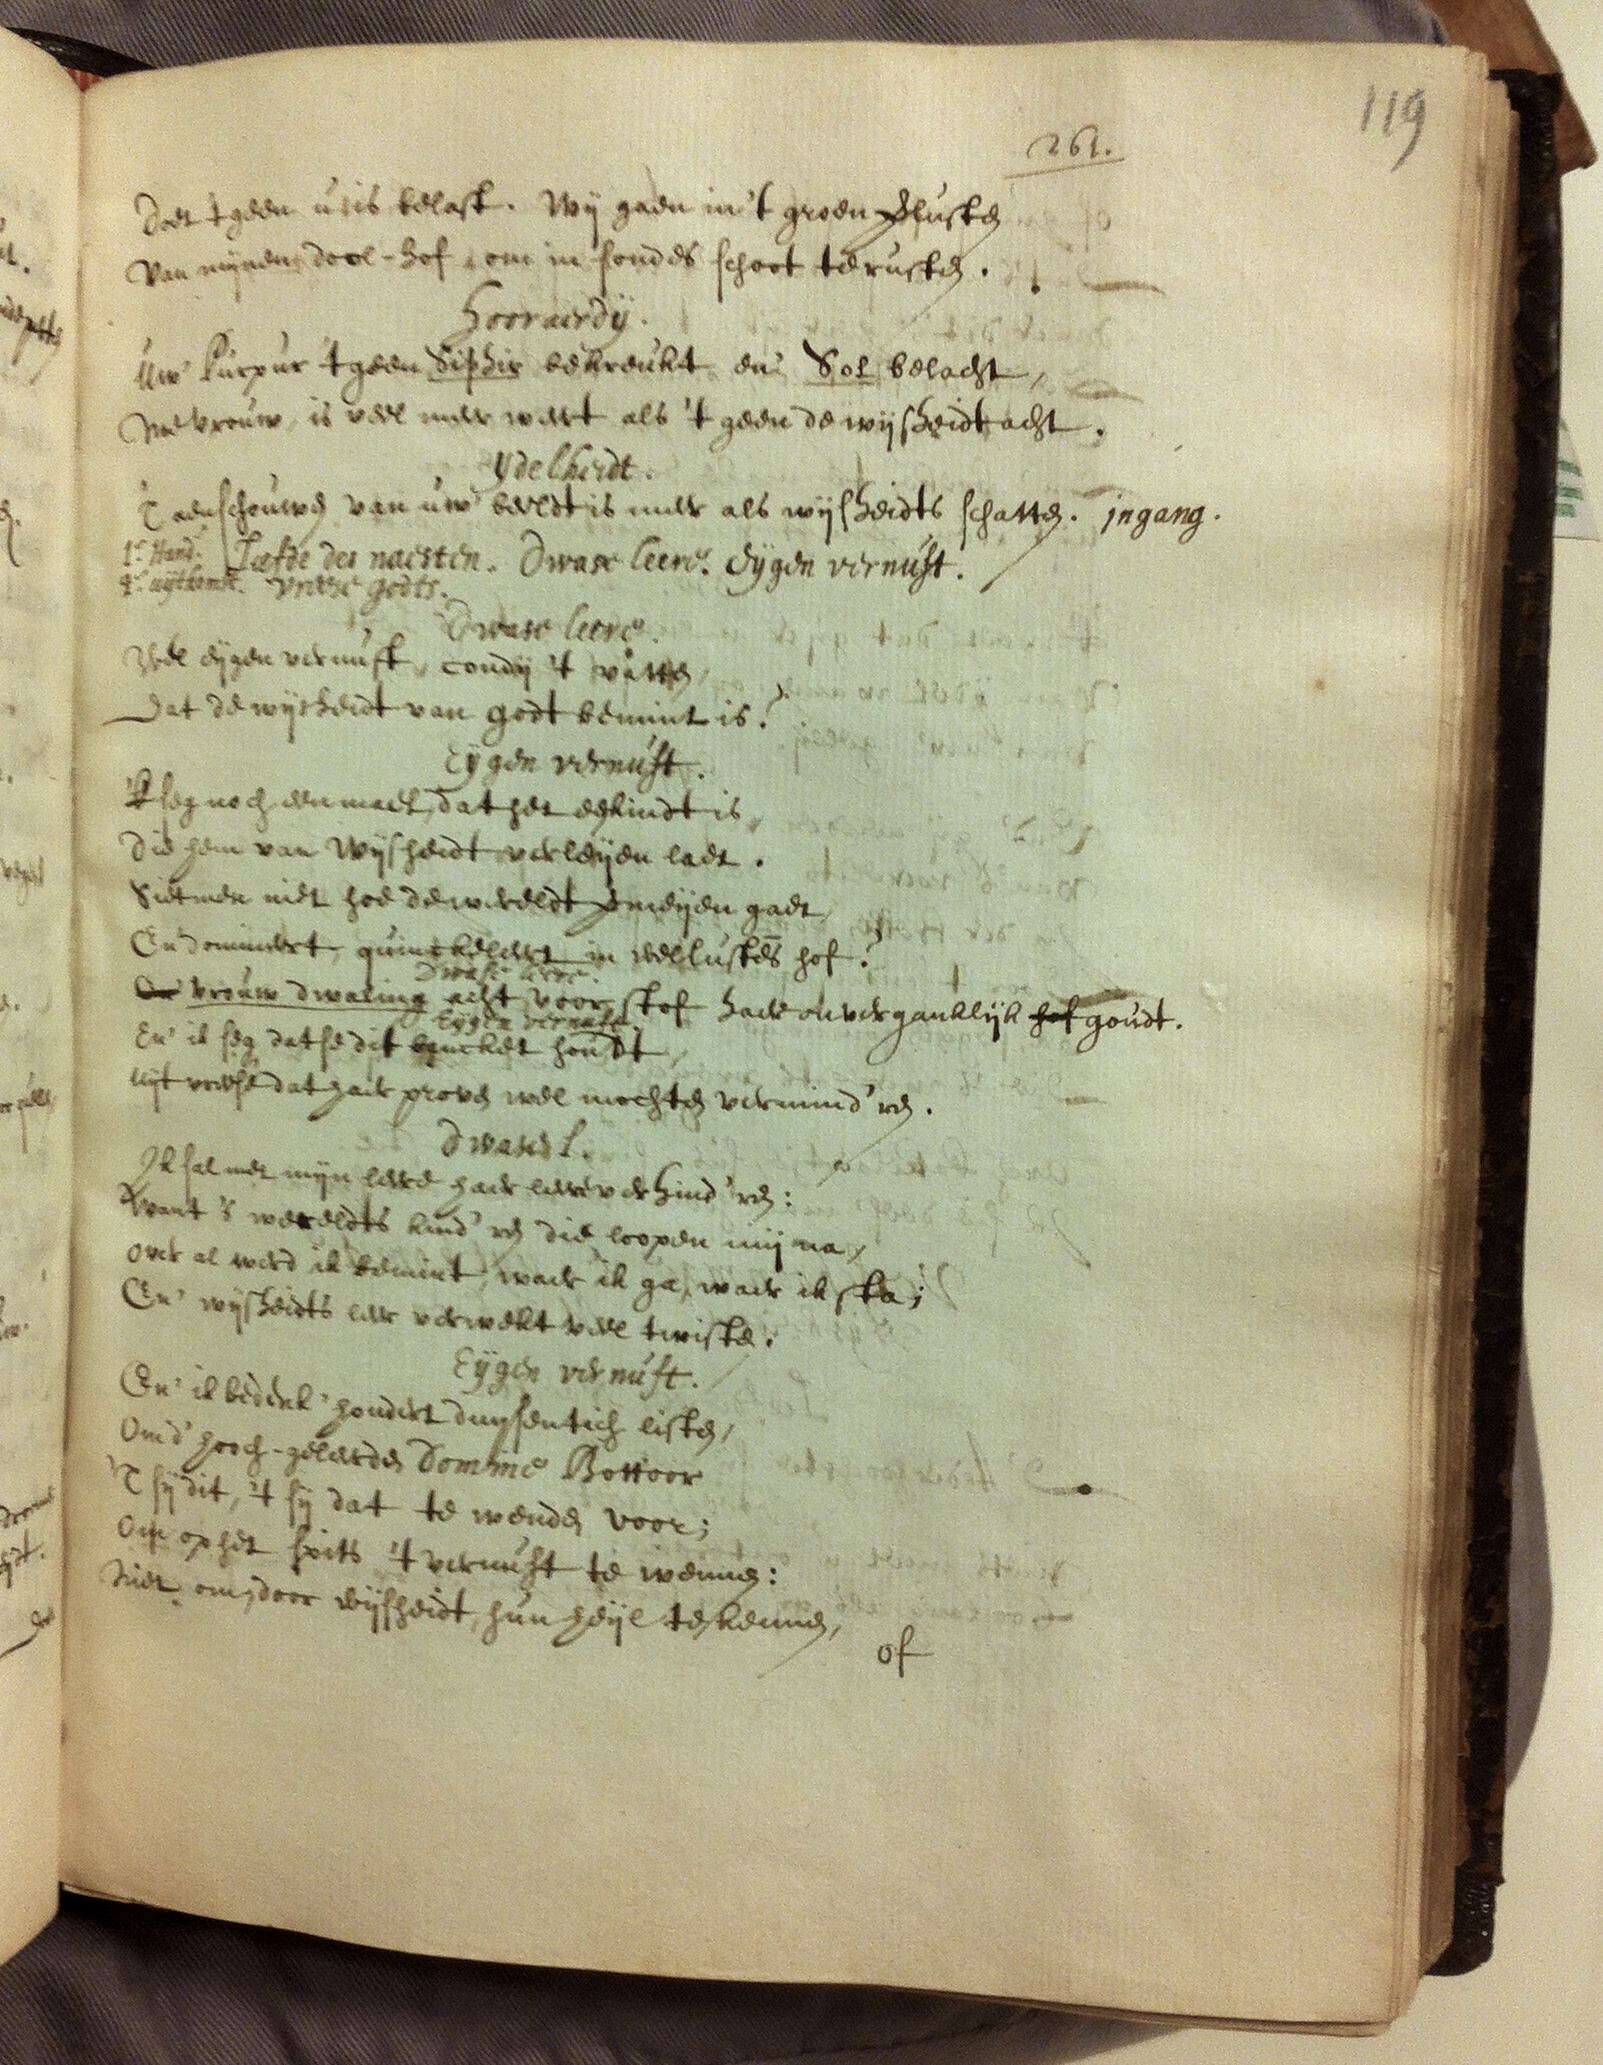 119
261.
Doet 't geen u is belast. Wij gaen in 't groen
van mijnen dool-hof, om in sondes schoot te rusten.
Hooraerdÿ.
Uw' Purpur 't geen Siphir bekreukt en' Sol belacht,
Me vrouw, is veel meer wert als 't geen de wijsheidt acht.
ydelheidt.
'T aenschouwen van uw' beeldt is meer als wijsheidts schatten. ingang.
1e. Hand. Liefde des naesten. Dwase leere. Eÿgen vernuft.
4e. uÿtkomst. vreese godts.
Dwase leere.
Wel eÿgen vernuft, condij 't vatten,
Dat de wijsheidt van godt bemint is?
Eÿgen vernuft.
'K seg noch een mael, dat het een kindt is,
Die hem van Wijsheidt verleÿen laet.
Sietmen niet hoe de wereldt meÿen gaet,
En domineert, quinckeleert in wellustens hof?
Dwase leere.
En' vrouw dwaling acht voor stof haer onverganklijk hof goudt.
Eÿgen vernuft.
En' ik seg datse dit bancket houdt,
uÿt vreese dat haer proven wel mochten vermind'ren.
Dwase l.
Ik sal met mijn leere haer leere verhind'ren:
Want 's wereldts kind'ren die loopen mij na,
over al werd ik bemint, waer ik ga, waer ik sta;
En' wijsheidts leer verwekt veel twisten.
Eÿgen vernuft.
En' ik bedenk' hondert duysentich listen,
Om d' hooch-geleerden Domine Bottoor
'T sÿ dit, 't sÿ dat te wenden voor;
Om op het spits 't vernuft te wennen:
Niet om, door wijsheidt, hun heÿl te kennen,
of